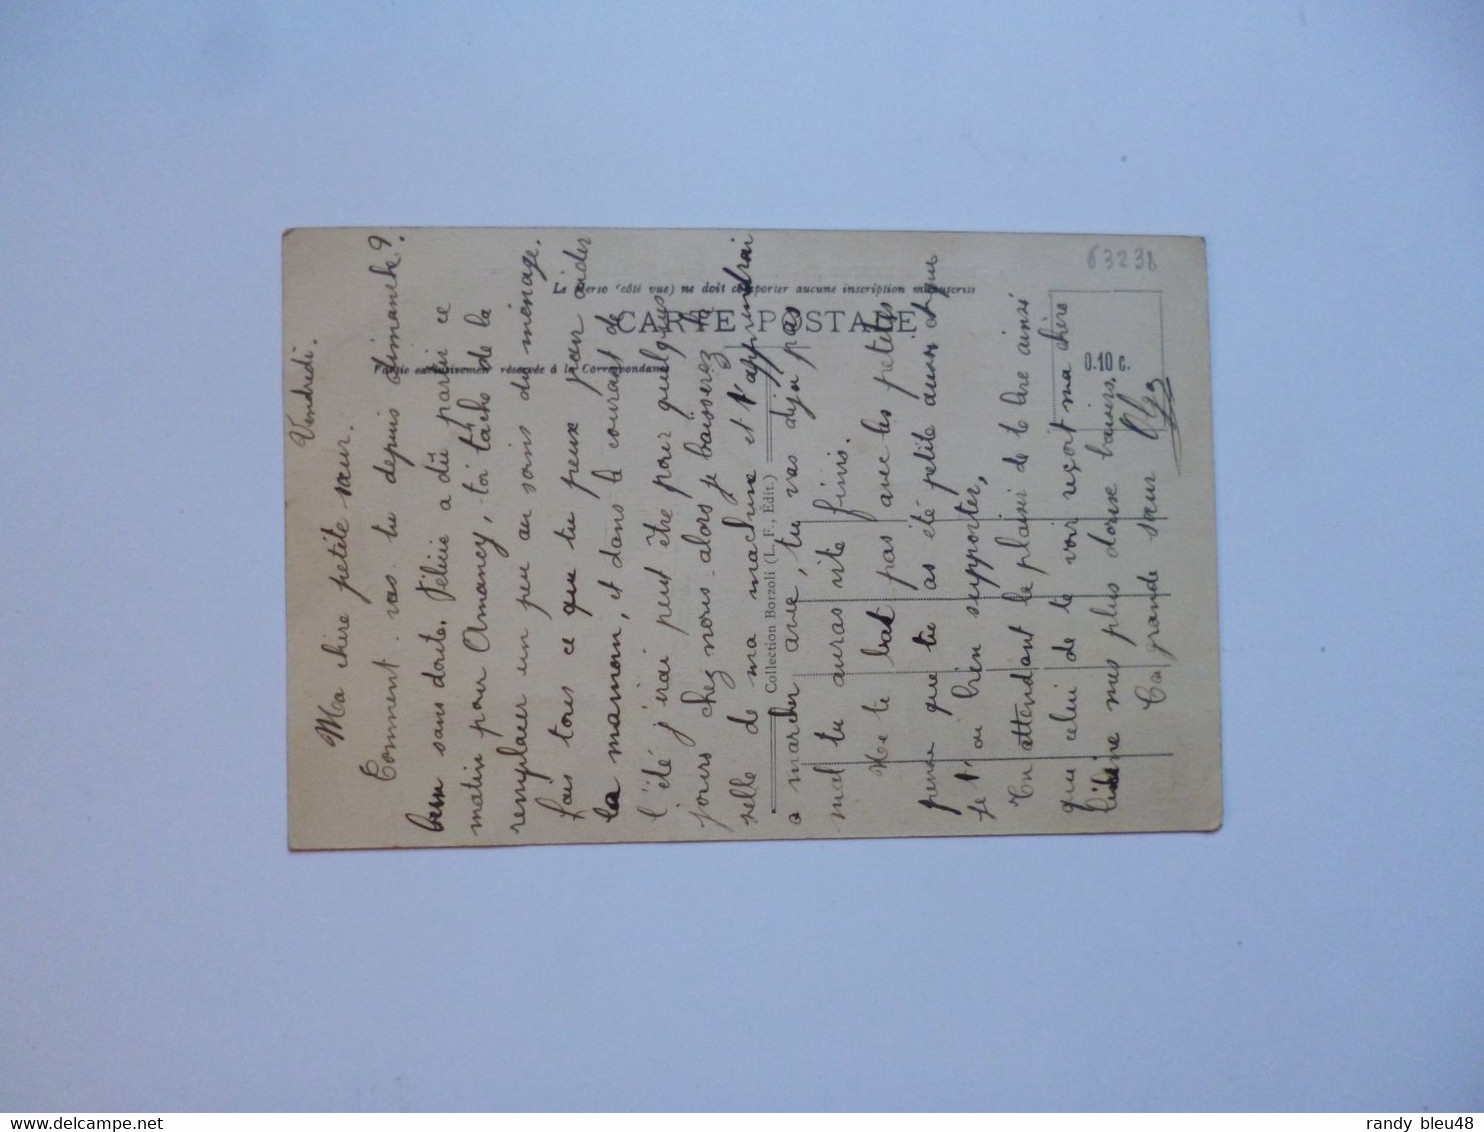 63238
Le Verso (côté vue) ne doit comporter aucune inscription manuscrite
CARTE POSTALE
Partie exclusivement réservée à la Correspondance
0.10 c.
Collection Borzoli (L. F., Édit.)
Vendredi.
Ma chère petite sœur.
Comment vas-tu depuis dimanche ?
bien sans doute. Félicie a dû partir ce
matin pour Amancy, toi tâche de la
remplacer un peu au soins du ménage.
fais tous ce que tu peux pour aider
ta maman, et dans le courant de
l'été j'irai peut être pour quelques
jours chez nous alors je baisserez la
selle de ma machine et t'apprendrai
a marcher avec, tu vas déja pas
mal tu auras vite finis.
Ne te bat pas avec les petites
pense que tu as été petite aussi et que
je t'ai bien supporter,
En attendant le plaisir de te lire ainsi
que celui de te voir reçoit ma chère
mes plus doux baisers,
Ta grande sœur
delcampe.net
randy bleu48